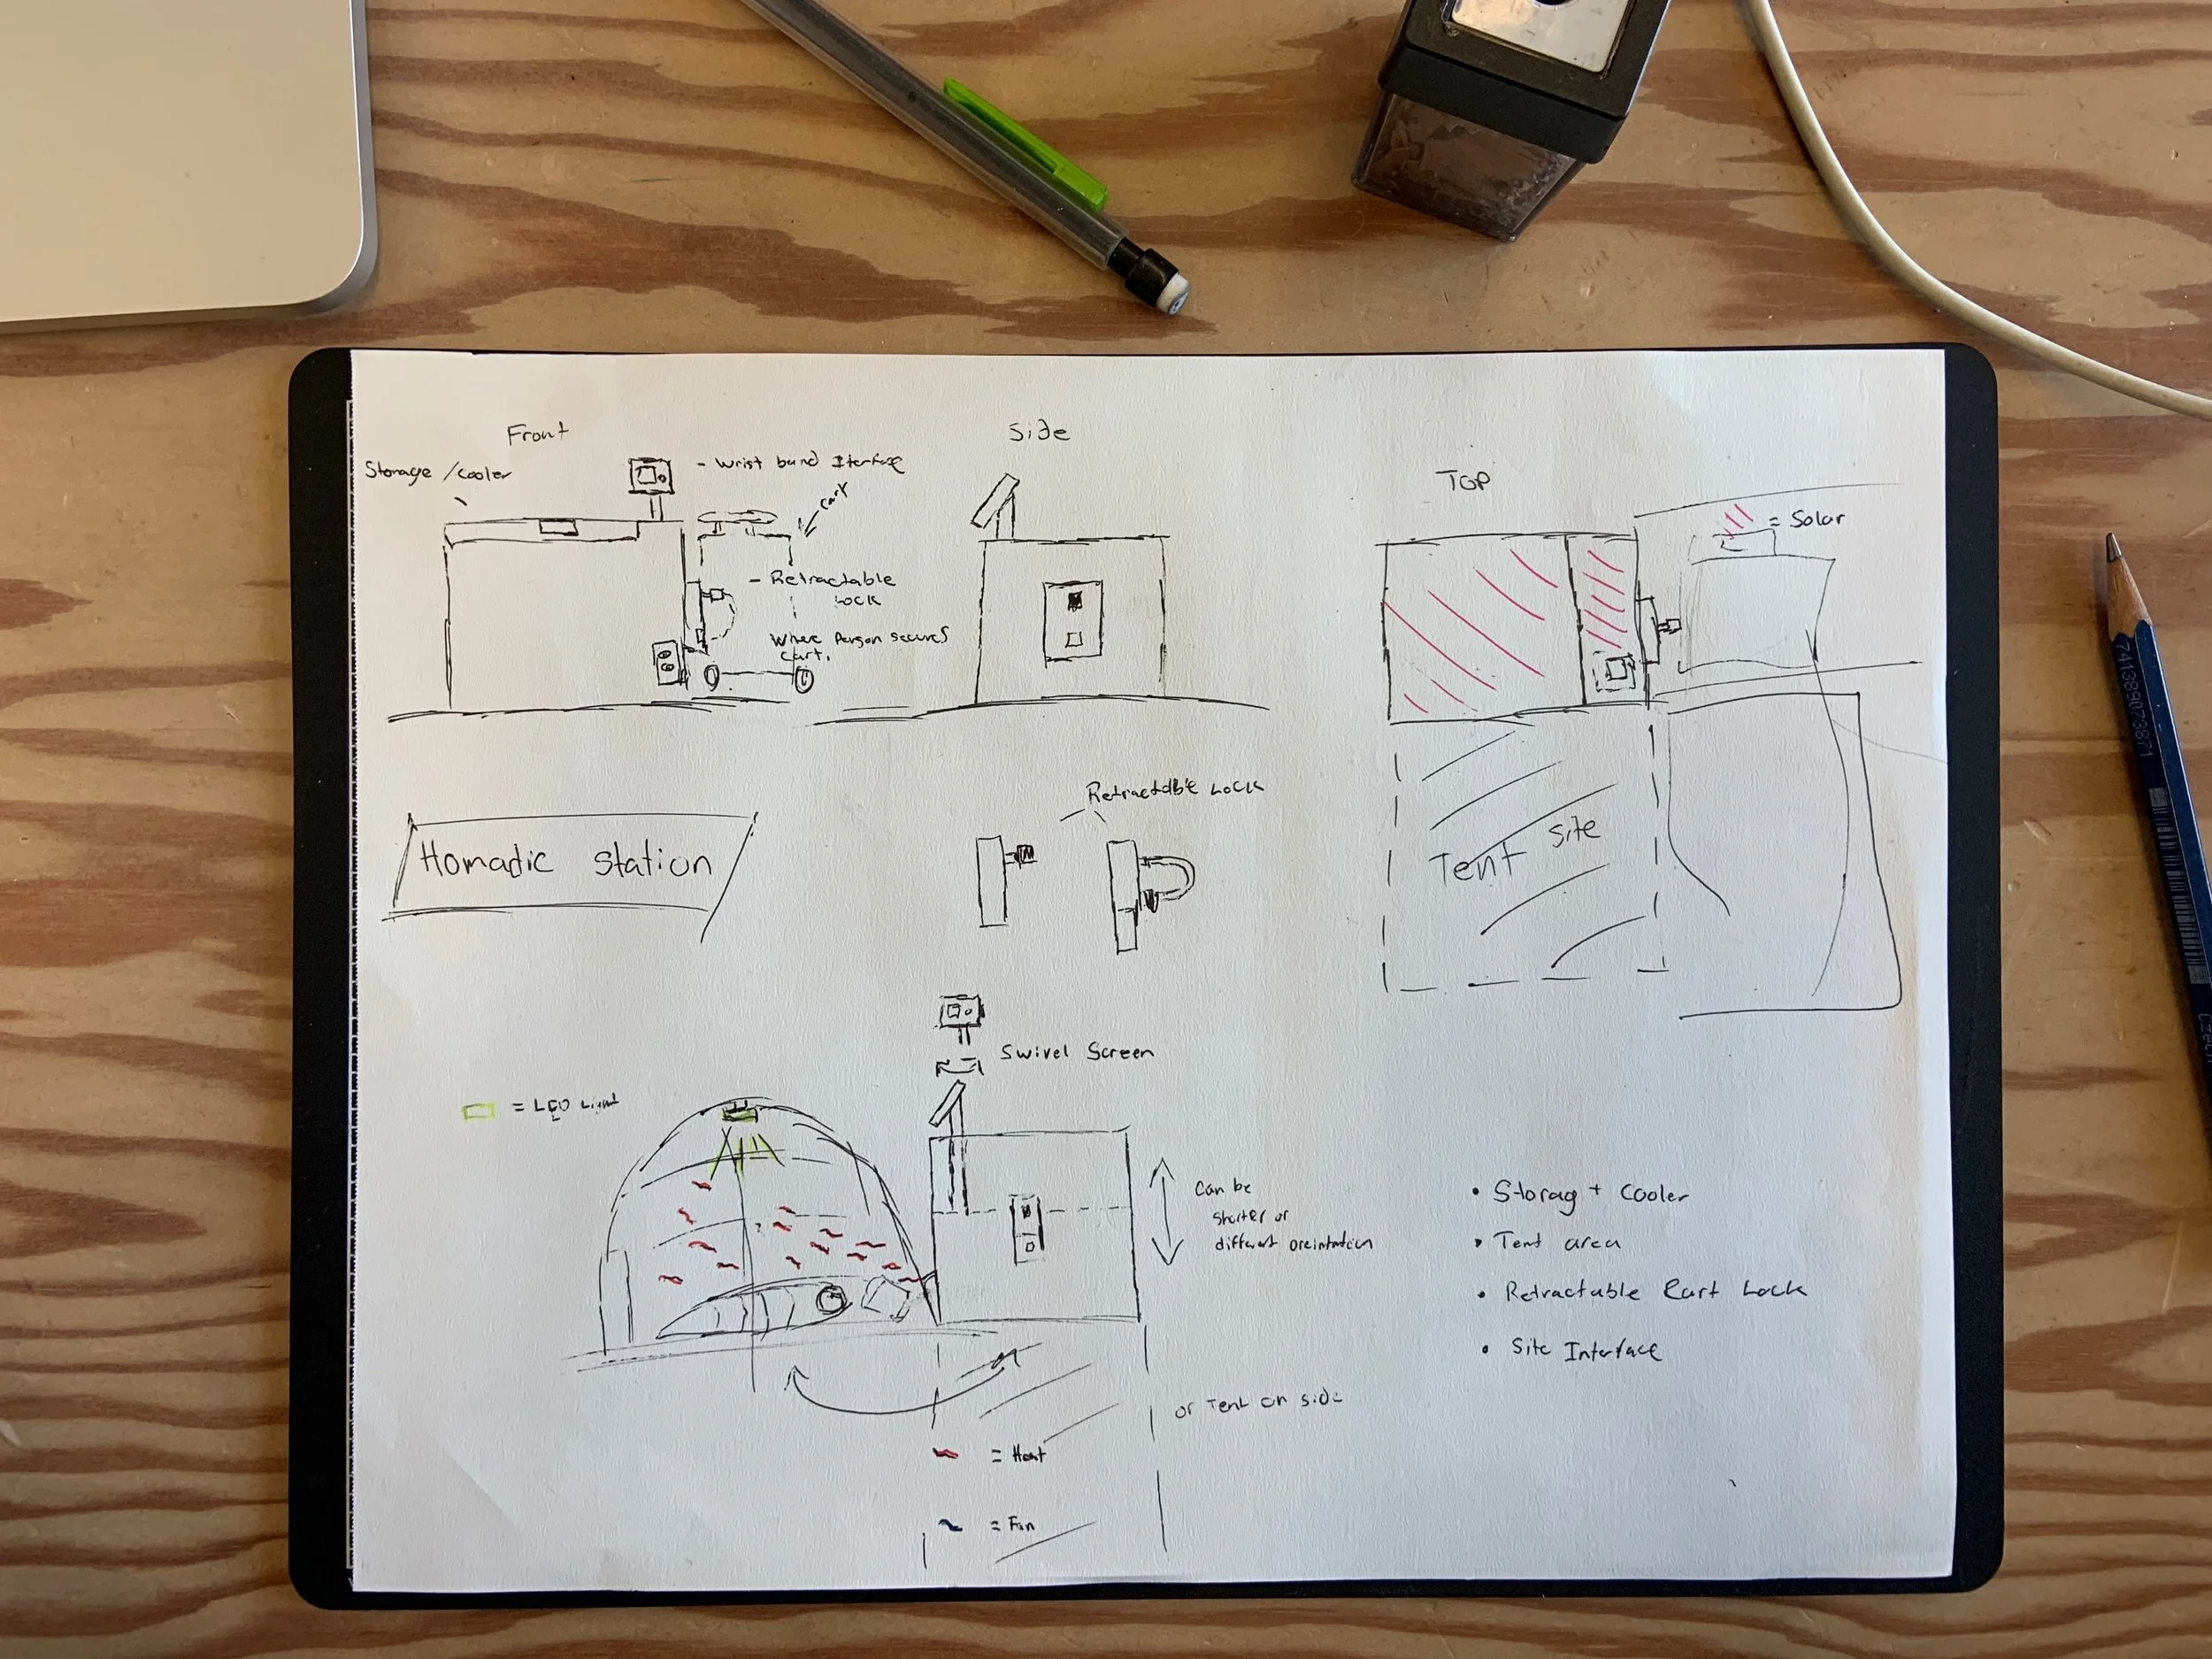 Front
Storage / cooler
- Wrist band Iterface
cart
- Retractable
Lock
Where Person secures
cart.
Side
TOP
= Solar
Tent site
Homadic station
Retractable Lock
Swivel Screen
= LED Light
can be
shorter or
different oreintation
or Tent on side
= Heat
= Fan
• Storag + cooler
• Tent area
• Retractable Cart Lock
• Site Interface
741389073871